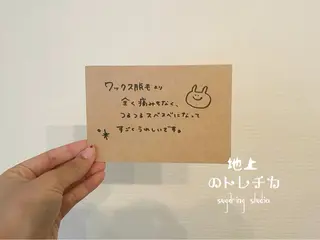 ワックス脱毛より
全く痛みもなく、
つるつるスベスベになって
すごくうれしいです。
地上
のトレチカ